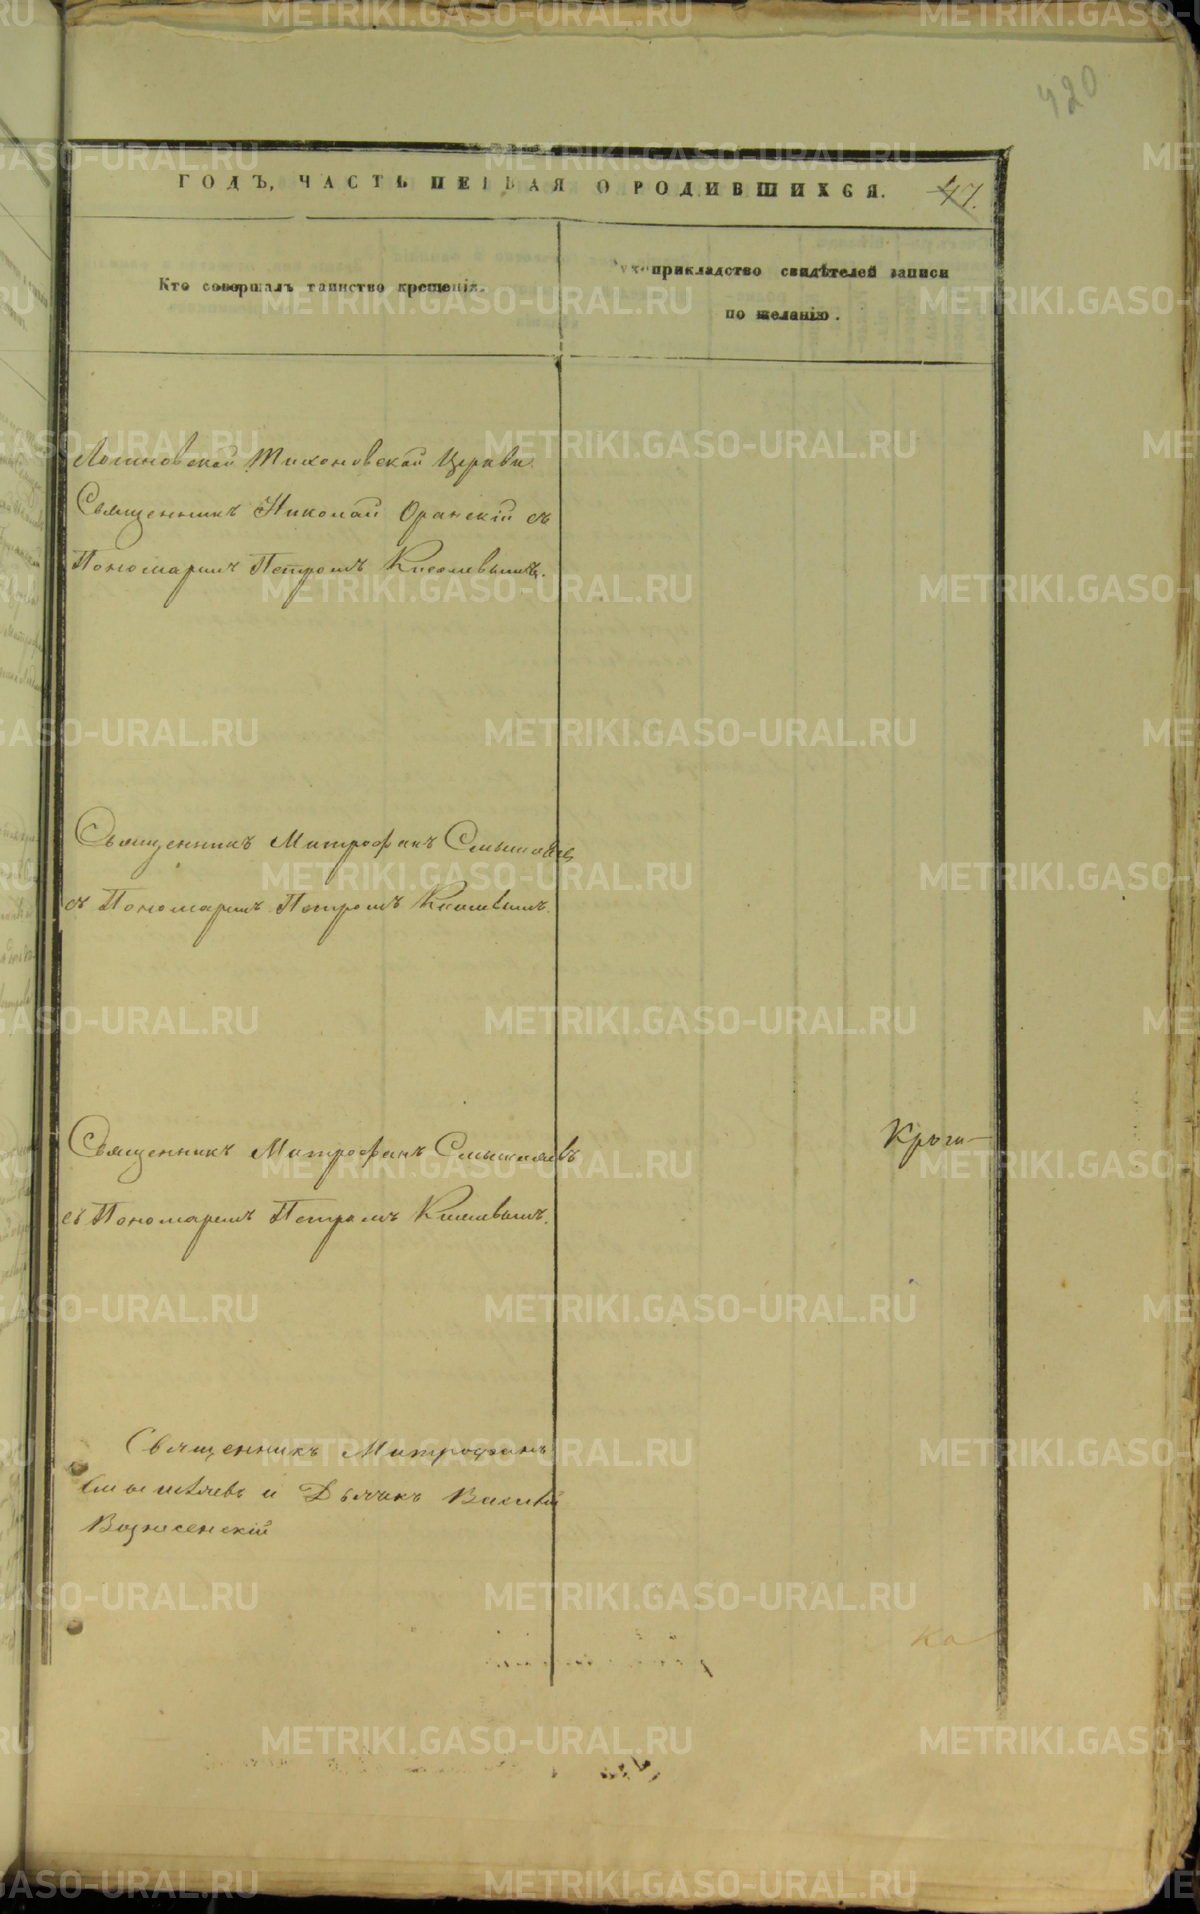 420
ГОДЪ, ЧАСТЬ ПЕРВАЯ О РОДИВШИХСЯ. 47.
Кто совершалъ таинство крещенія.
Рукоприкладство свидѣтелей записи
по желанію.
Логиновской Тихоновской Церкви
Священникъ Николай Оранскій съ
Пономаремъ Петромъ Киселевымъ.
Священникъ Митрофанъ Смышляевъ
съ Пономаремъ Петромъ Киселевымъ.
Священникъ Митрофанъ Смышляевъ
съ Пономаремъ Петромъ Киселевымъ.
Священникъ Митрофанъ
Смышляевъ и Дьячекъ Василій
Вознесенскій
METRIKI.GASO-URAL.RU